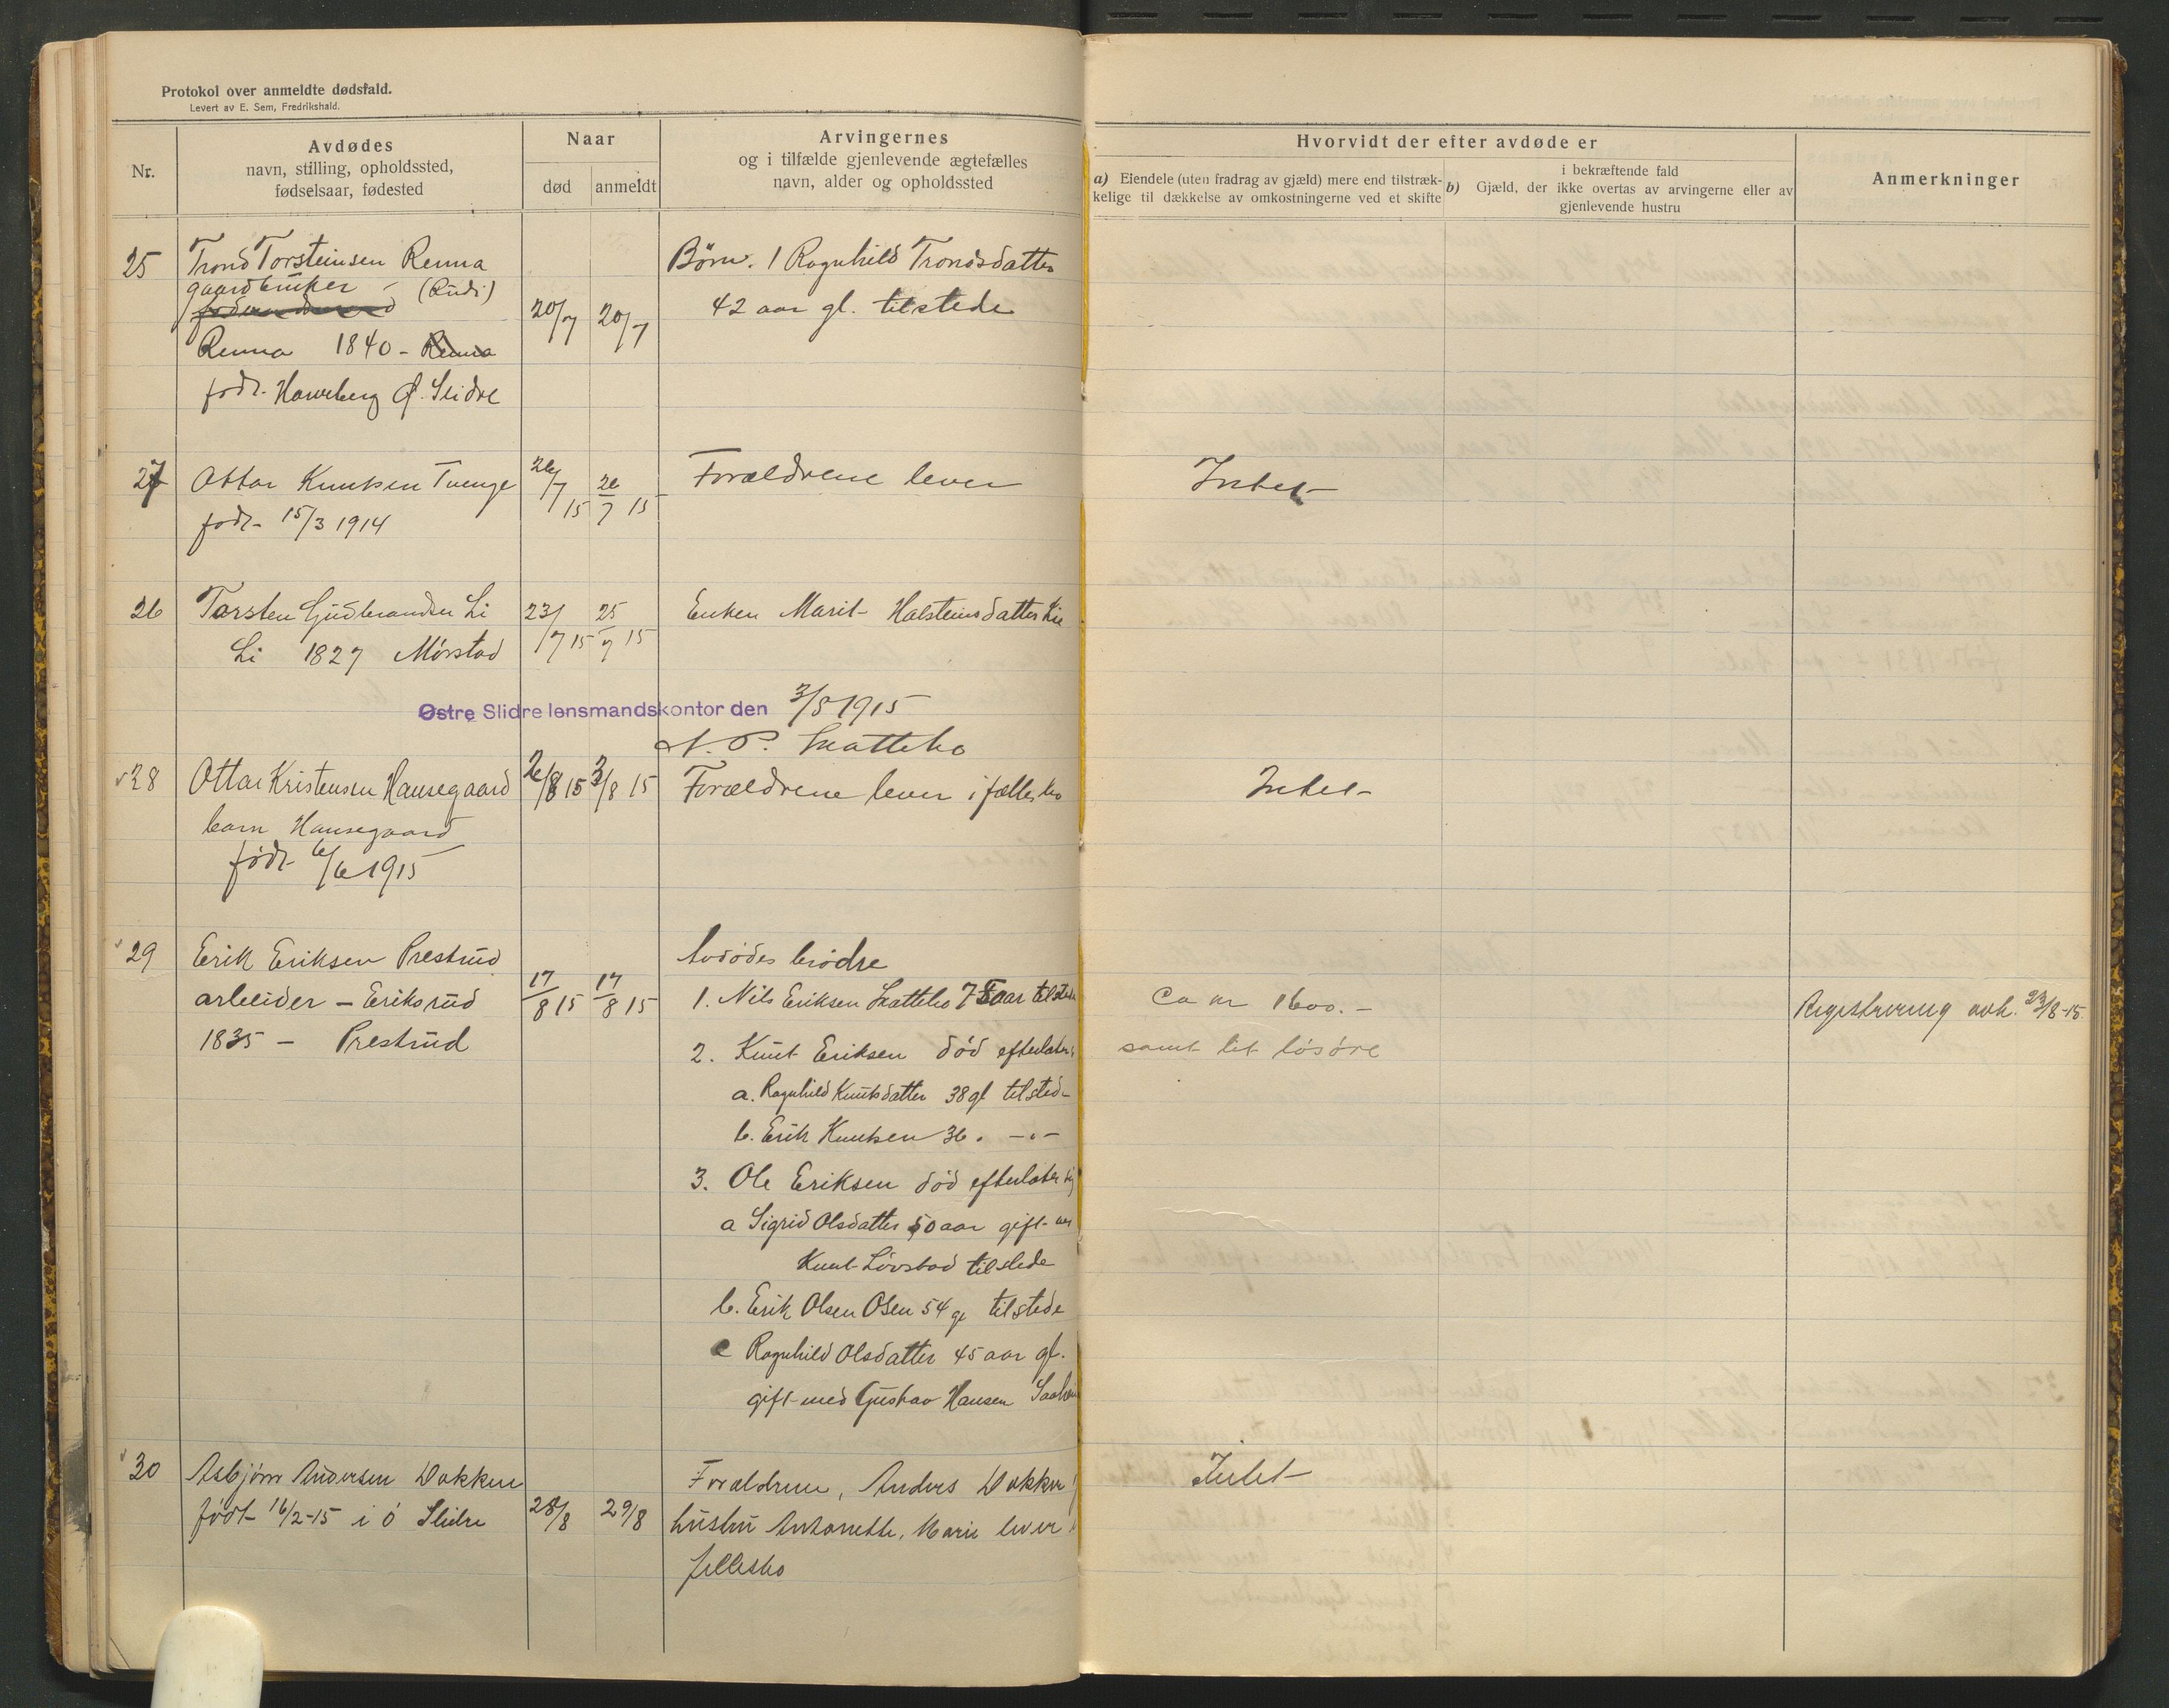 Protokol over anmeldte dødsfald.
Levert av E. Sem, Fredrikshald.
Nr.
Avdødes
navn, stilling, opholdssted,
fødselsaar, fødested
Naar
død
anmeldt
Arvingernes
og i tilfælde gjenlevende ægtefælles
navn, alder og opholdssted
Hvorvidt der efter avdøde er
a) Eiendele (uten fradrag av gjæld) mere end tilstræk-
kelige til dækkelse av omkostningerne ved et skifte
b) Gjæld, der
i bekræftende fald
ikke overtas av arvingerne eller av
gjenlevende hustru
Anmerkninger
25
Trond Torsteinsen Renna
gaardbruker - (Rudi)
Renna 1840 - Renna
født Ø. Slidre
20/7
20/7
Børn. 1 Ragnhild Trondsdatter
42 aar gl. tilstede
27
Ottar Knutsen Tvenge
født 15/3 1914
26/7 15
26/7 15
Forældrene lever
Intet
26
Torsten Gudbrandsen Li
Li 1827 Mørstad
23/7 15
25/7 15
Enken Marit Halsteinsdatter Lie
Østre Slidre lensmandskontor den 3/8 1915
N. P. Skattebo
28
Ottar Kristensen Hausegaard
barn Hausegaard
født 6/6 1915
2/8 15
3/8 15
Forældrene lever i fællesbo
Intet
29
Erik Eriksen Prestrud
arbeider - Eriksrud
1835 - Prestrud
17/8 15
17/8 15
Avdødes brødre
1. Nils Eriksen Skattebo 75 aar tilstede
2. Knut Eriksen død efterlater
a. Ragnhild Knutsdatter 38 gl tilsted-
b. Erik Knutsen 36. -"-
3. Ole Eriksen død efterlater sig
a Sigrid Olsdatter 50 aar gift
Knut Løvstad tilstede
b. Erik Olsen Osen 54 gl tilstede
c Ragnhild Olsdatter 45 aar gl.
gift med Gustav Hansen
Ca kr 1600.-
samt lit løsøre
Registrering avh. 23/8-15.
30
Asbjørn Andersen Dokken
født 16/2-15 i Ø Slidre
28/8
29/8
Forældrene, Anders Dokken
hustru Antonette, Marie lever
fellesbo
Intet